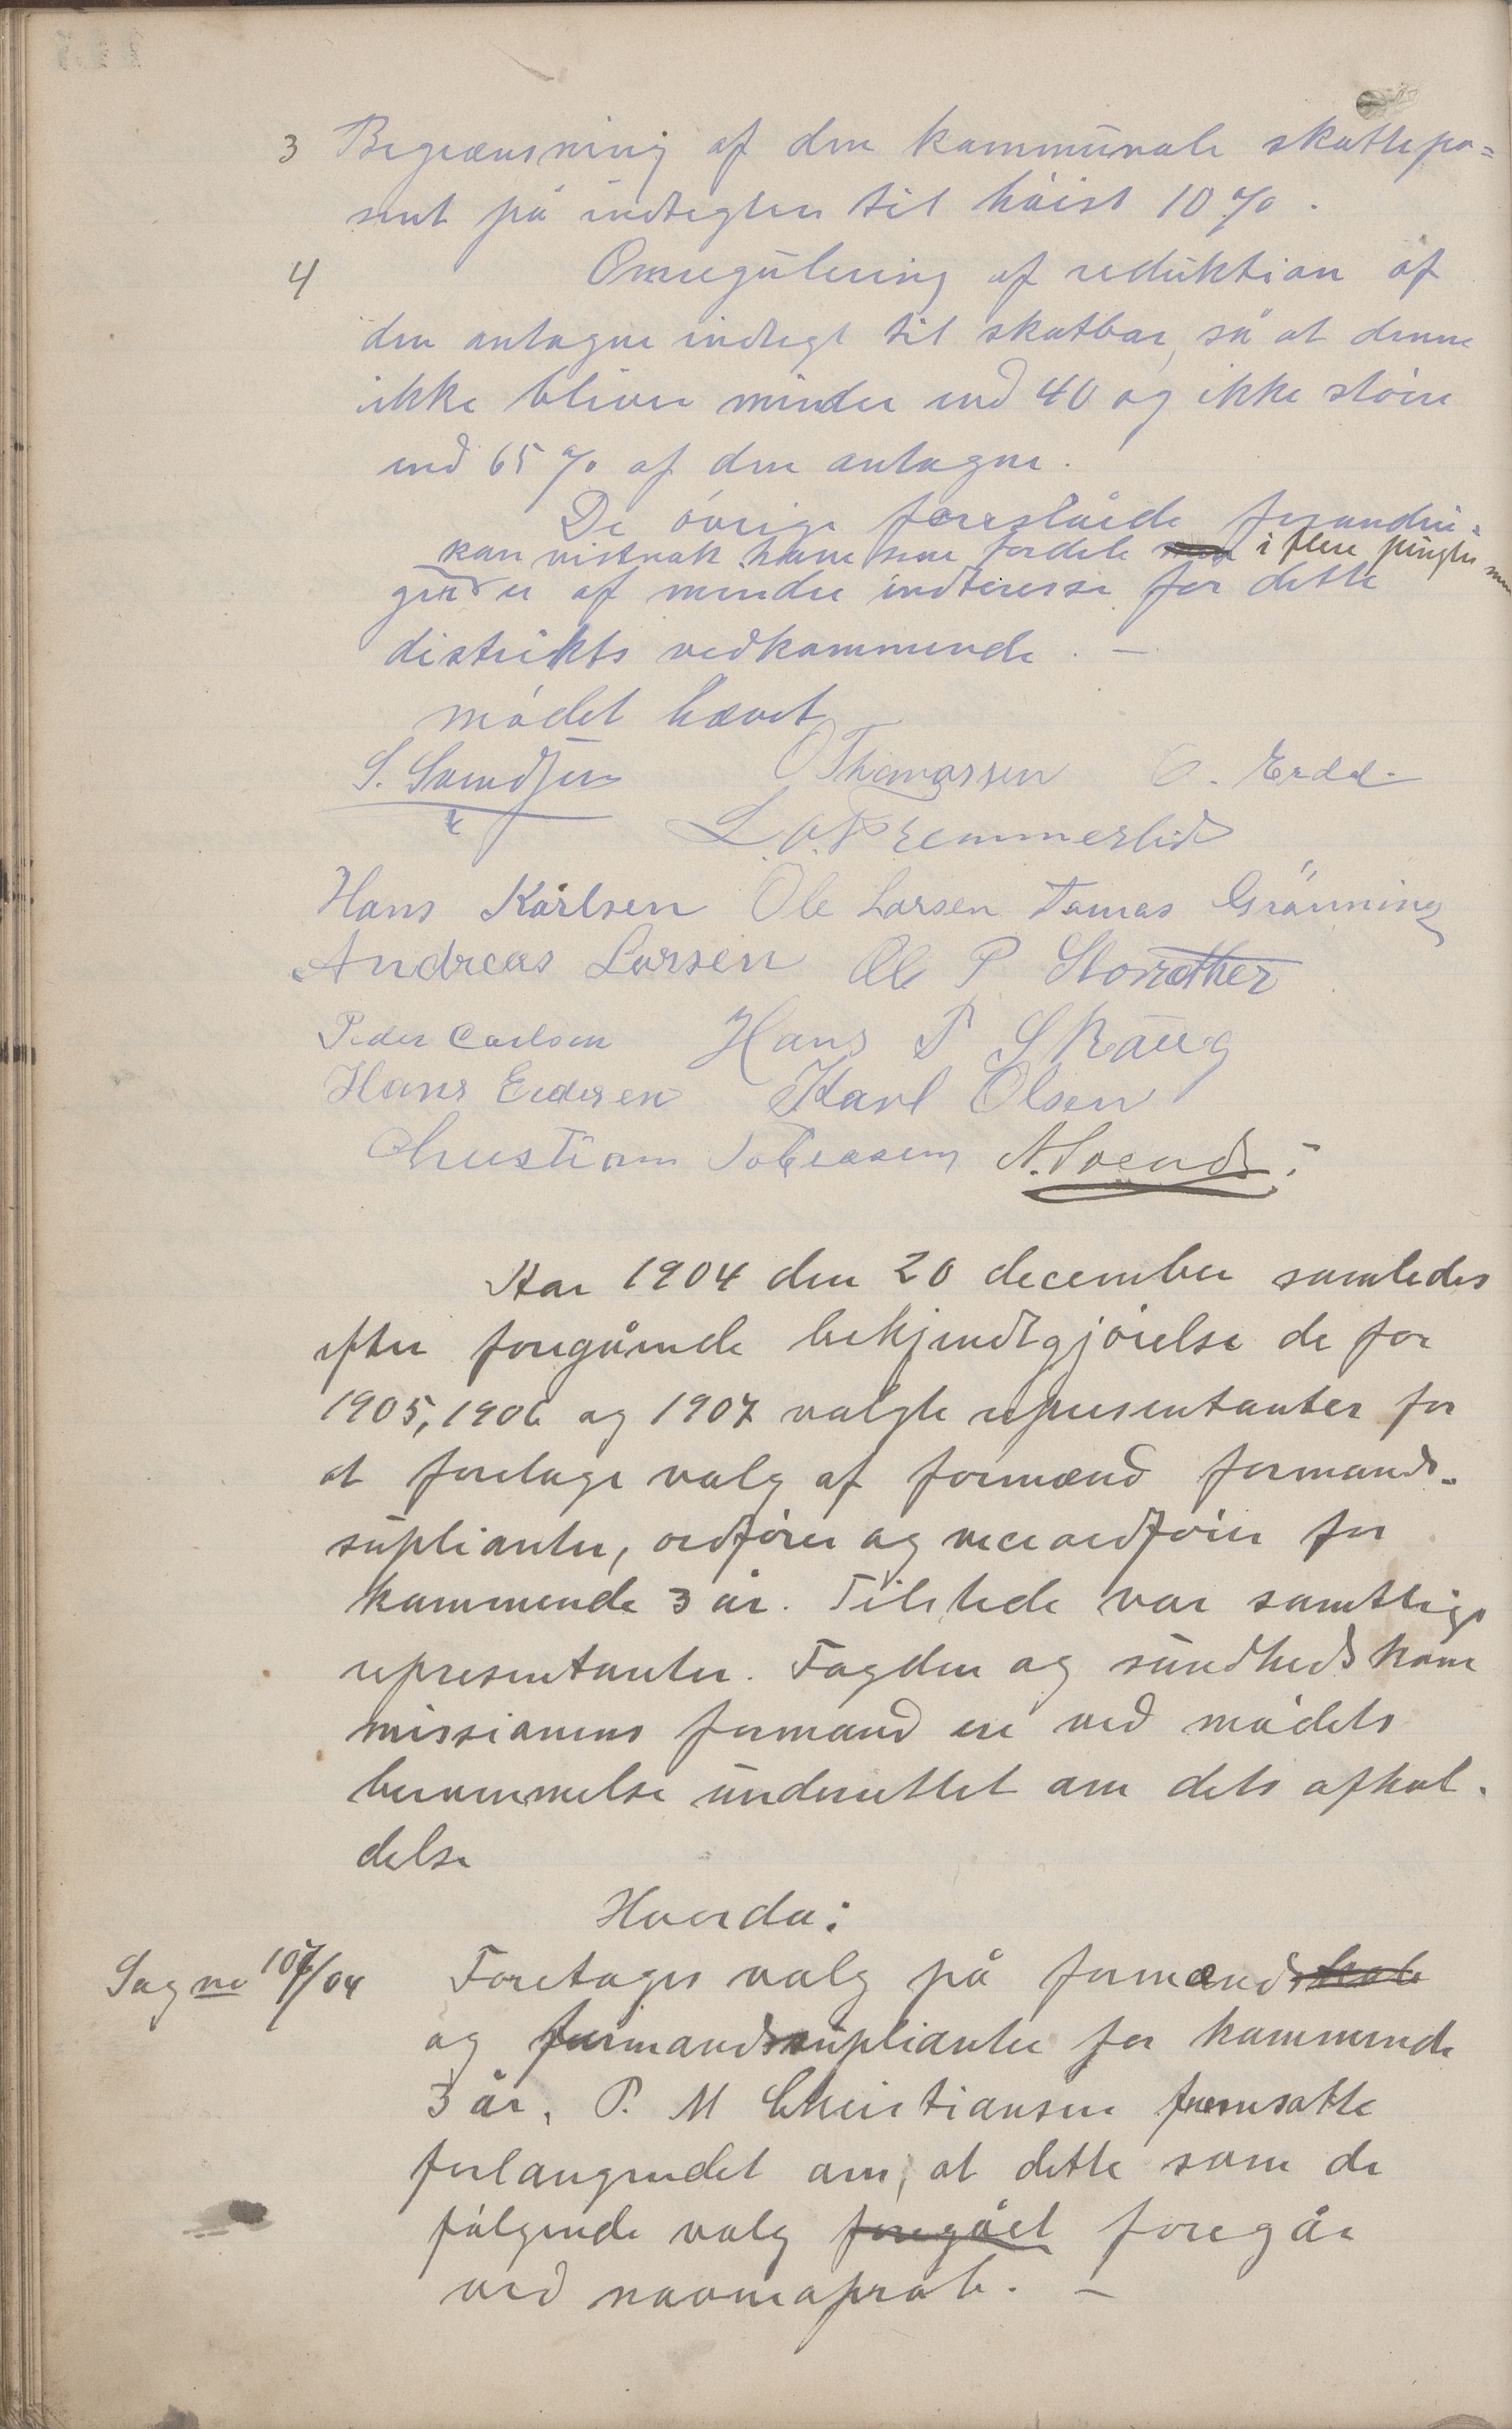 3 Begrænsning af den kommunale skattepro=
sent på indtegten til høist 10 %.
4 Omregulering af reduktion af
den antagne indtegt til skatbar, så at denne
ikke bliver mindre end 40 og ikke større
end 65 % af den antagne.
De øvrige foreslåede forandrin-
kan nistnok have sine fordele i flere punkter men
ger er af mindre indteresse for dette
distrikts vedkommende. —
mødet hævet
S. Svendsen O Thomassen O.
L. A. Bremmerlid
Hans Karlsen Ole Larsen Tomas Grønning
Andreas Larsen Ole P Storrother
Peder Carlsen Hans P Skaug
Hans Edisen Karl Olsen
Christian Tobiasen N. Svends:
Aar 1904 den 20 december samledes
efter foregående bekjendtgjørelse de for
1905, 1906 og 1907 valgte representanter for
at foretage valg af formænd formands-
suplianter, ordfører og viceordfører for
kommende 3 år. Tilstede var samtlige
representanter. Fogden og sundhedskom
missionens formand ere ved mødets
berammelse underrettet om dets afhol-
delse
Hvorda:
Sag no 107/04 Foretoges valg på formænd
og formandssuplianter for kommende
3 år. P. M Christiansen fremsatte
forlangendet om, at dette som de
følgende valg foregået foregår
ved navneopråb. —